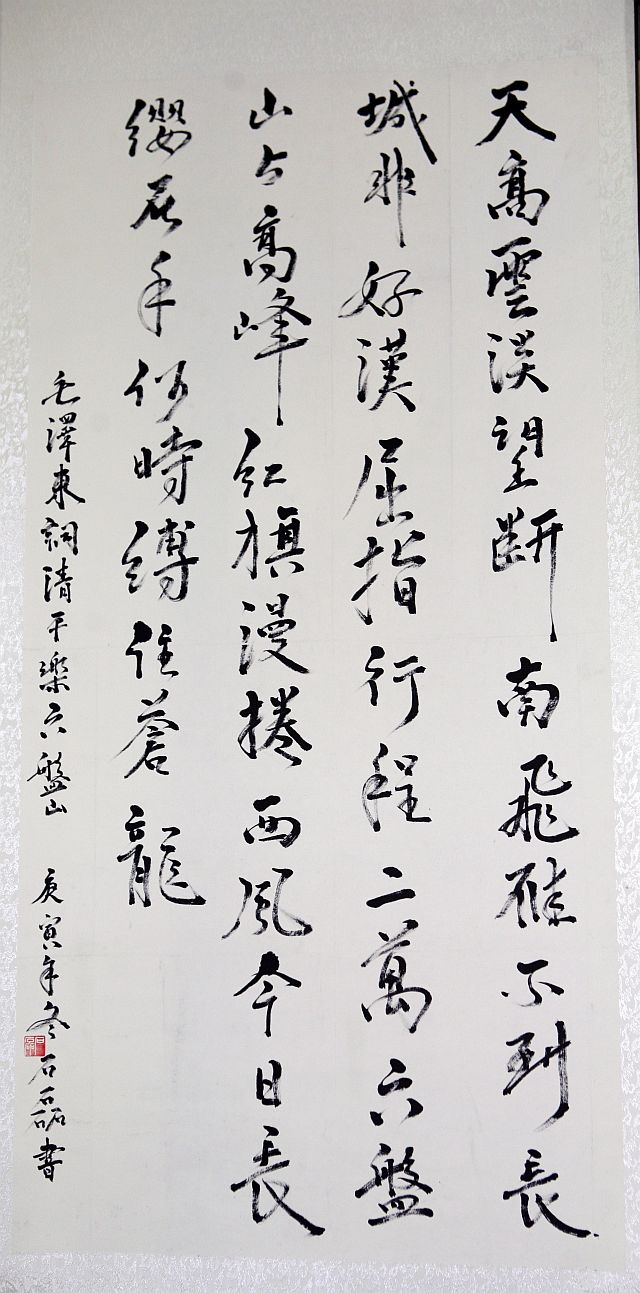 天高雲淡望斷南飛雁不到長
城非好漢屈指行程二萬六盤
山上高峰紅旗漫捲西風今日長
纓在手何時縛住蒼龍
毛澤東詞清平樂六盤山 庚寅年冬石磊書